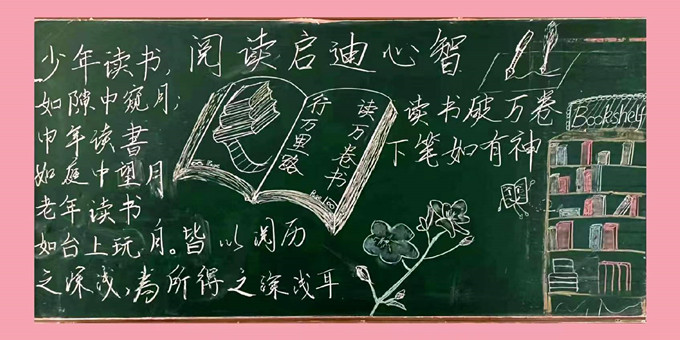 阅读启迪心智
少年读书,
如隙中窥月;
中年读書
如庭中望月
老年读书
如台上玩月。皆以阅历
之深浅,為所得之深浅耳
读万卷书
行万里路
读书破万卷
下笔如有神
Bookshelf